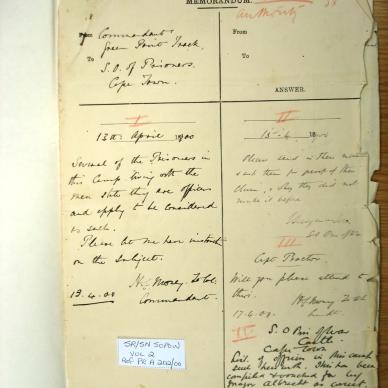 MEMORANDUM.
Authority
From Commandant
Green Point Track
To S.O. of Prisoners
Cape Town.
From
To
ANSWER.
I
13th April 1900
Several of the Prisoners in
this Camp living with the
men state they are officers
and apply to be considered
as such.
Please let me have instructions
on the subject.
Commandant.
13.4.00
II
15-4 1900
Please send in their names
& ask them for proof of their
claim, & why they did not
make it before
III
Capt Proctor.
Will you please attend to
this.
17.4.00
IV
S.O. Pris of War
Castle
Cape Town
List of officers in this camp
sent herewith. This has been
compiled & vouched for by
Major Albrecht as correct
SR/SN SOPOW
VOL 2
Ref PR A 202/00